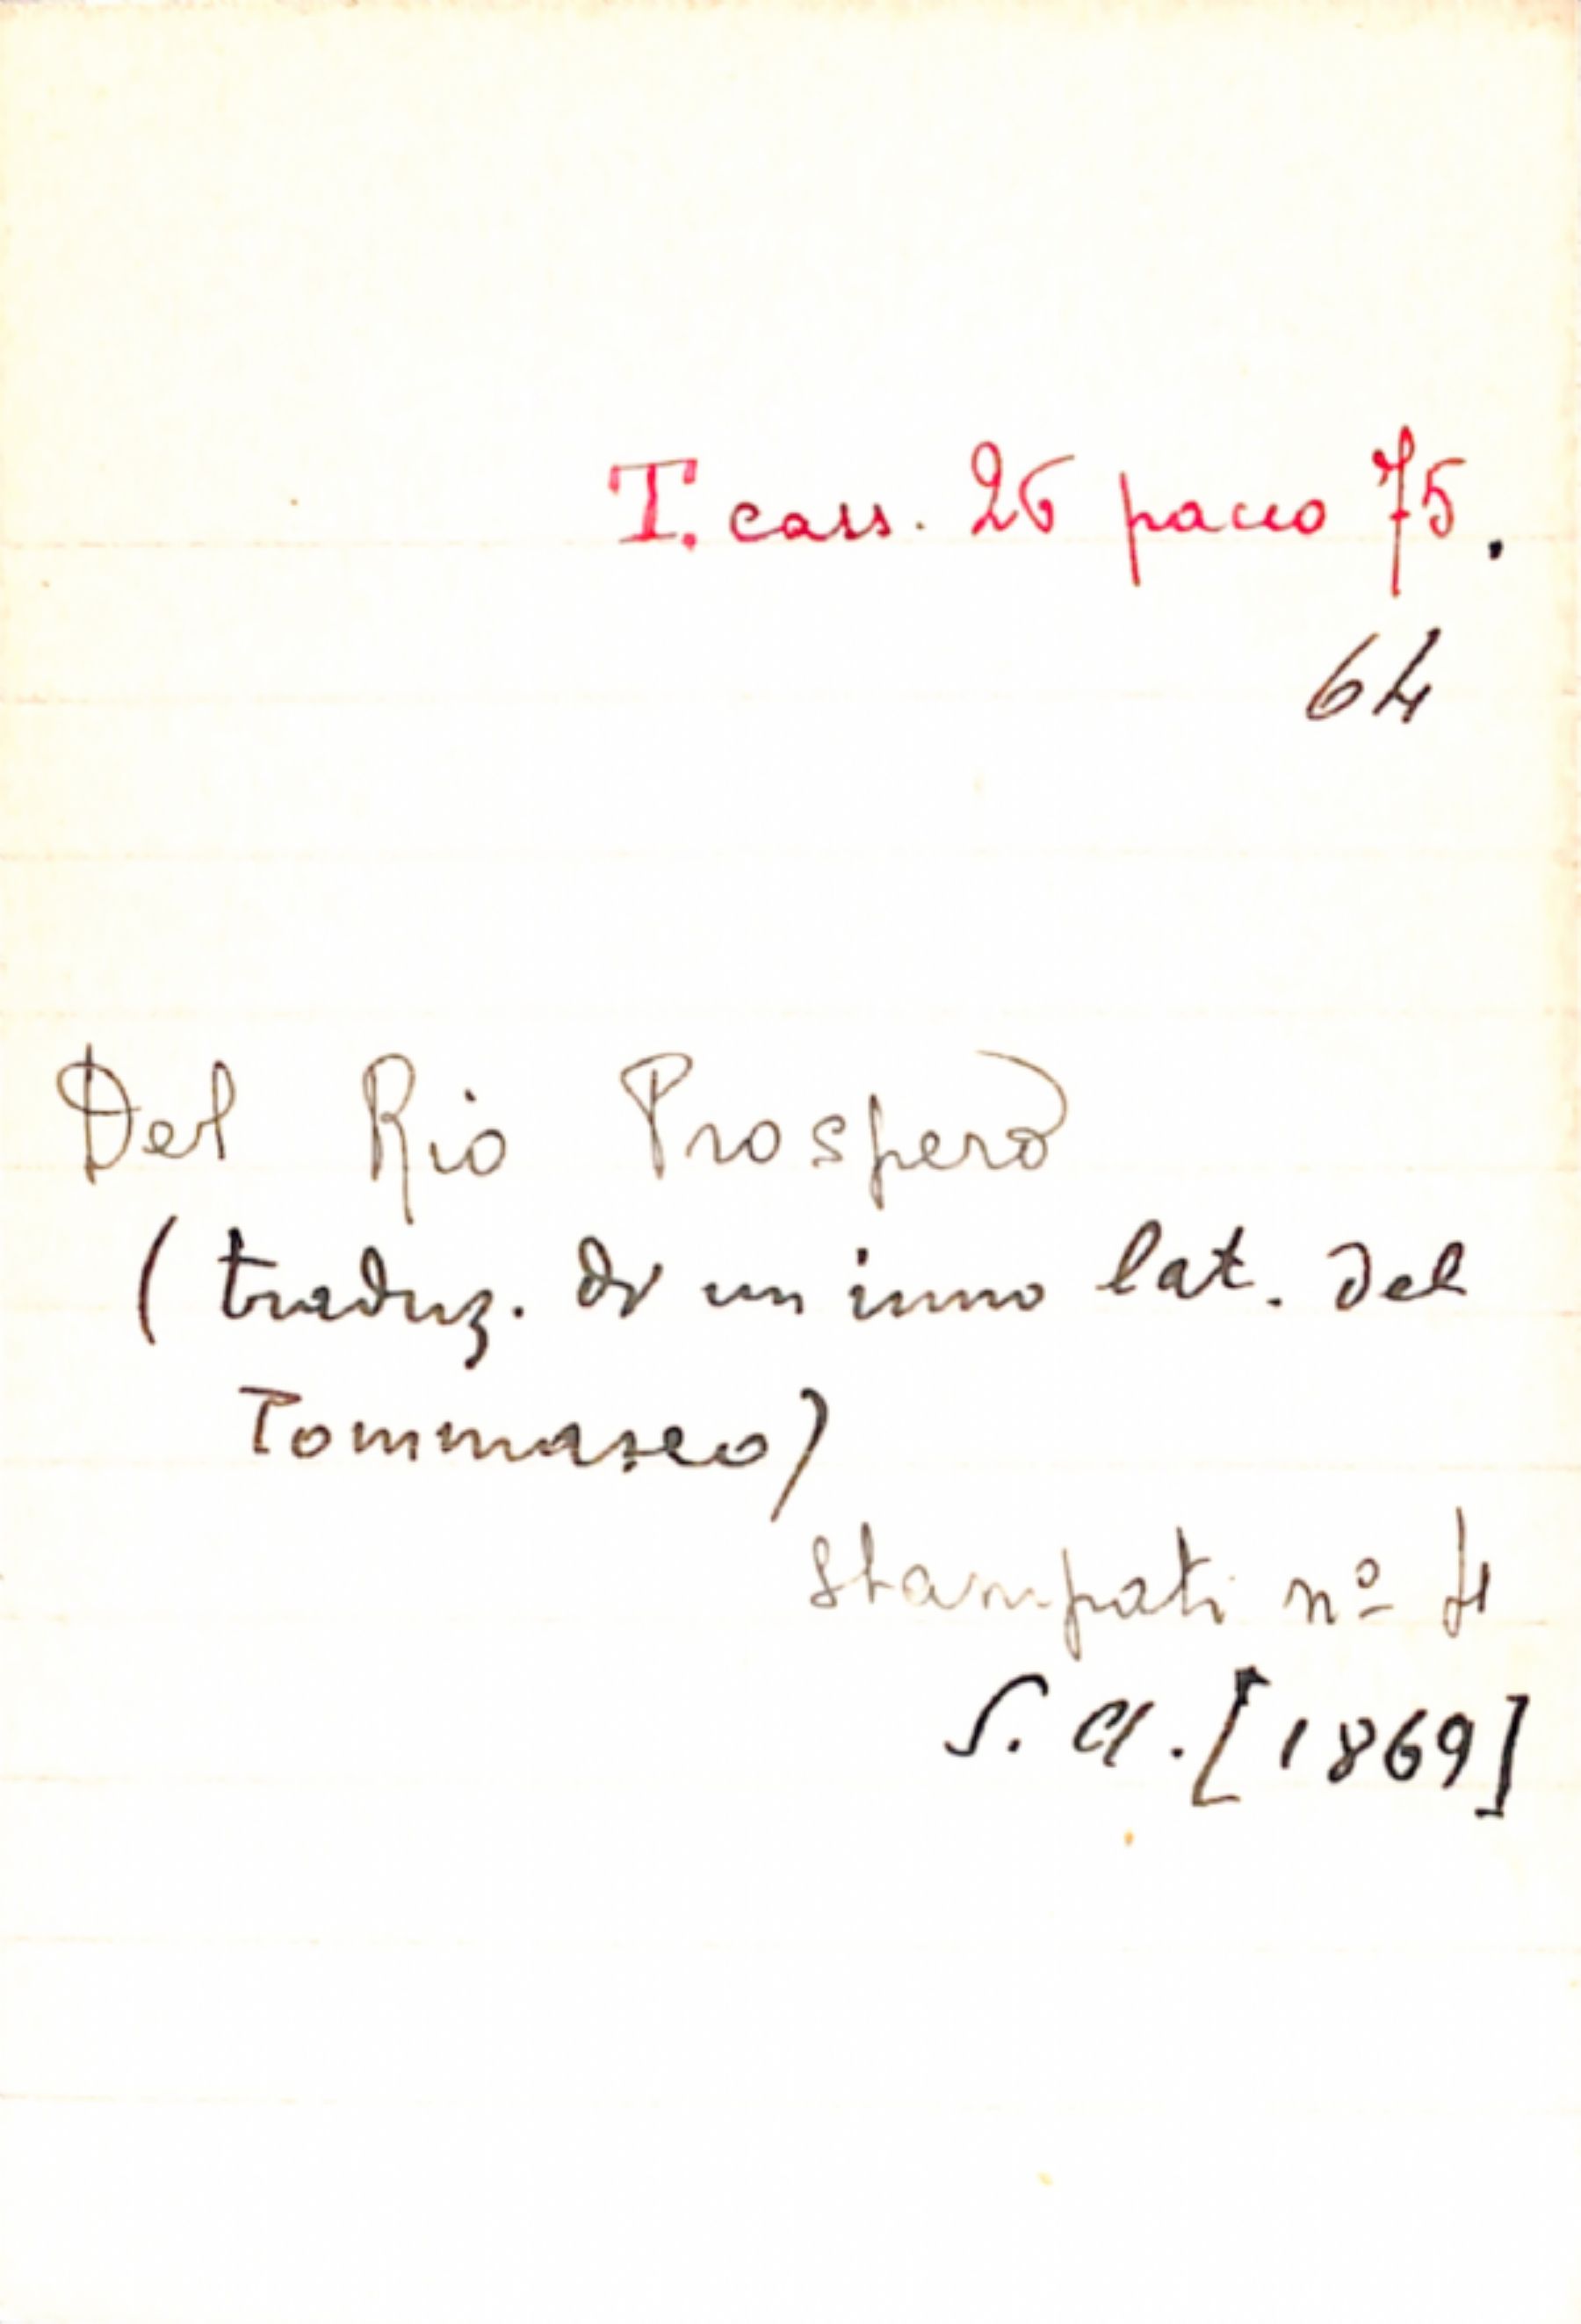 T. cass. 26 pacco 75.
64
Del Rio Prospero
(traduz. di un inno lat. del
Tommaseo)
Stampati nº 4
S. a. [1869]